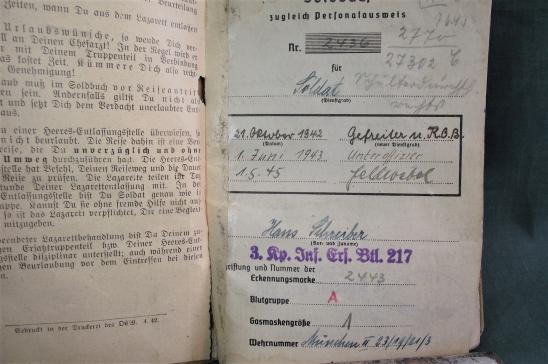 Zeiten, wann Du aus dem Lazarett entlassen
Urlaubswünsche, so wende Dich ver-
an Deinen Chefarzt! In der Regel wird er
mit Deinem Truppenteil in Verbindung
das kostet Zeit. Kümmere Dich also recht-
Genehmigung!
muß im Soldbuch vor Reiseantritt
sein. Andernfalls giltst Du nicht als
und setzt Dich dem Verdacht unerlaubter Ent-
aus.
einer Heeres-Entlassungsstelle überwiesen, so
nicht beurlaubt. Die Reise dahin ist eine
die Du unverzüglich und ohne
Umweg durchzuführen hast. Die Heeres-
hat Befehl, Deinen Reiseweg und die Dauer
Reise zu prüfen. Die Lazarette teilen ihr
Stunde Deiner Lazarettentlassung mit. In der
Entlassungsstelle bist Du Soldat genau wie in
Kannst Du sie ohne fremde Hilfe nicht auf-
so ist das Lazarett verpflichtet, Dir eine Beglei-
mitzugeben.
beendeter Lazarettbehandlung bist Du Deinem zu-
Ersatztruppenteil bzw. Deiner Heeres-Ent-
disziplinar unterstellt; auch während einer
Beurlaubung vor dem Eintreffen bei diesen
Gedruckt in der Druckerei des OKW. 4. 42.
zugleich Personalausweis
Nr. 2436
27302 E
für
Soldat
(Dienstgrad)
rechts
21. Oktober 1942 Gefreiter u. R.O.B.
(Datum) (neuer Dienstgrad)
1. Juni 1943 Unteroffizier
1.5.45 Feldwebel
Hans Schreiber
(Vor- und Zuname)
3. Kp. Inf. Ers. Btl. 217
Beschriftung und Nummer der
Erkennungsmarke 2443
Blutgruppe A
Gasmaskengröße 1
Wehrnummer München II